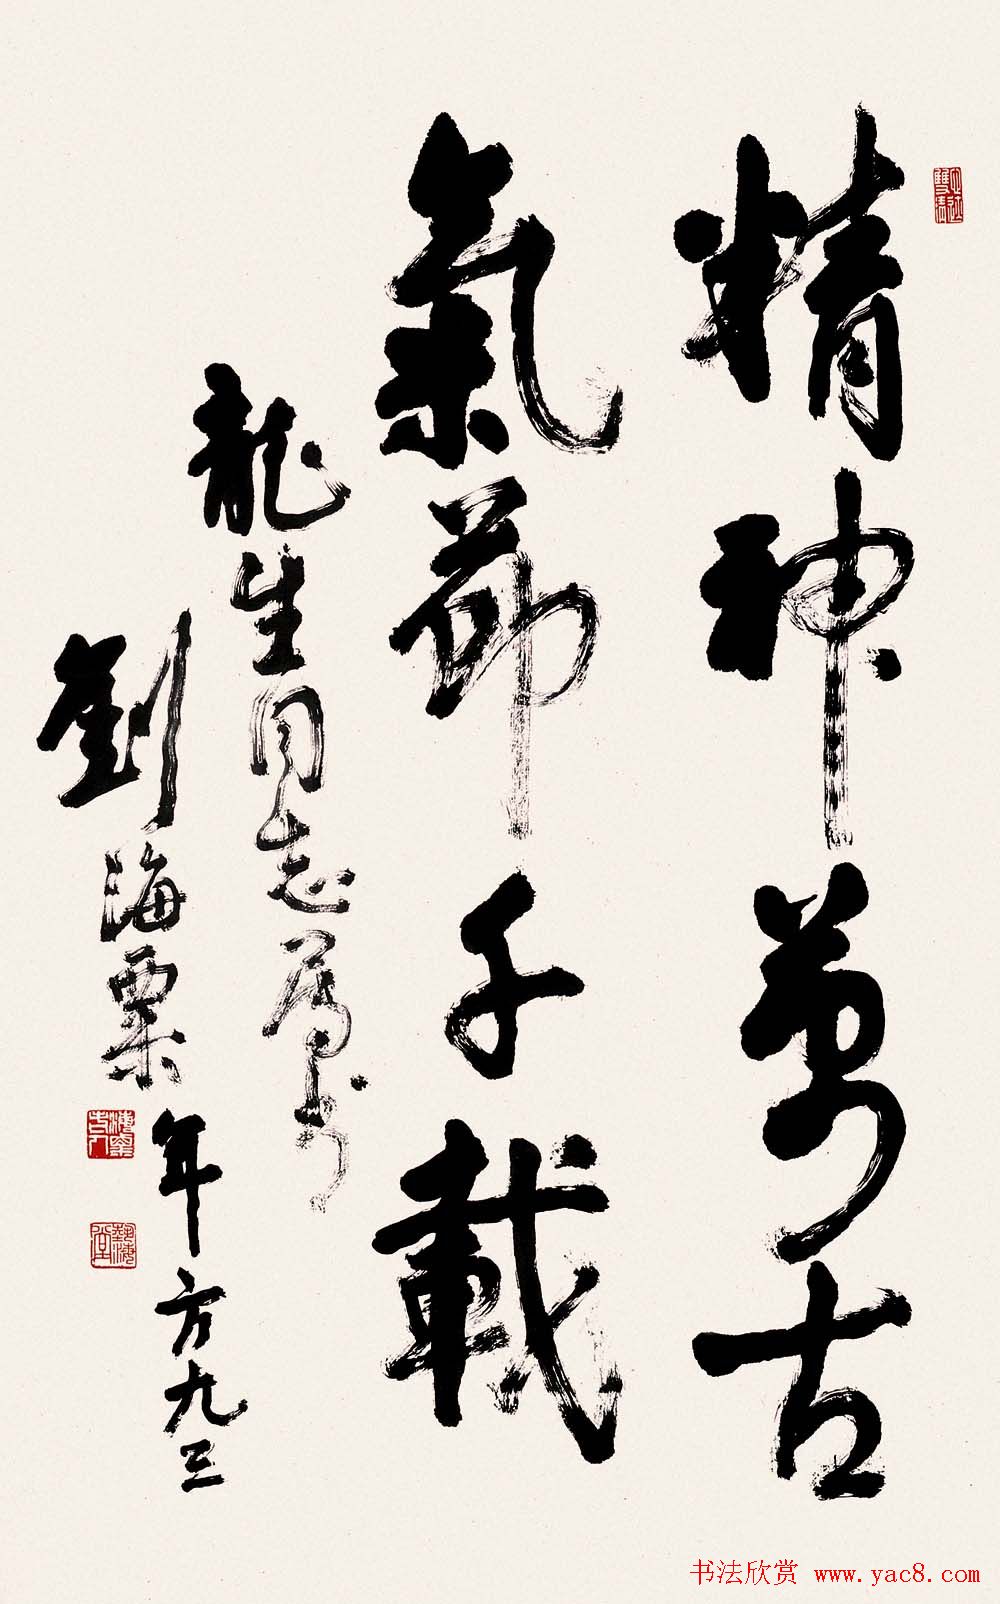 精神萬古
氣節千載
龍生同志屬书
劉海粟年方九三
书法欣赏 www.yac8.com